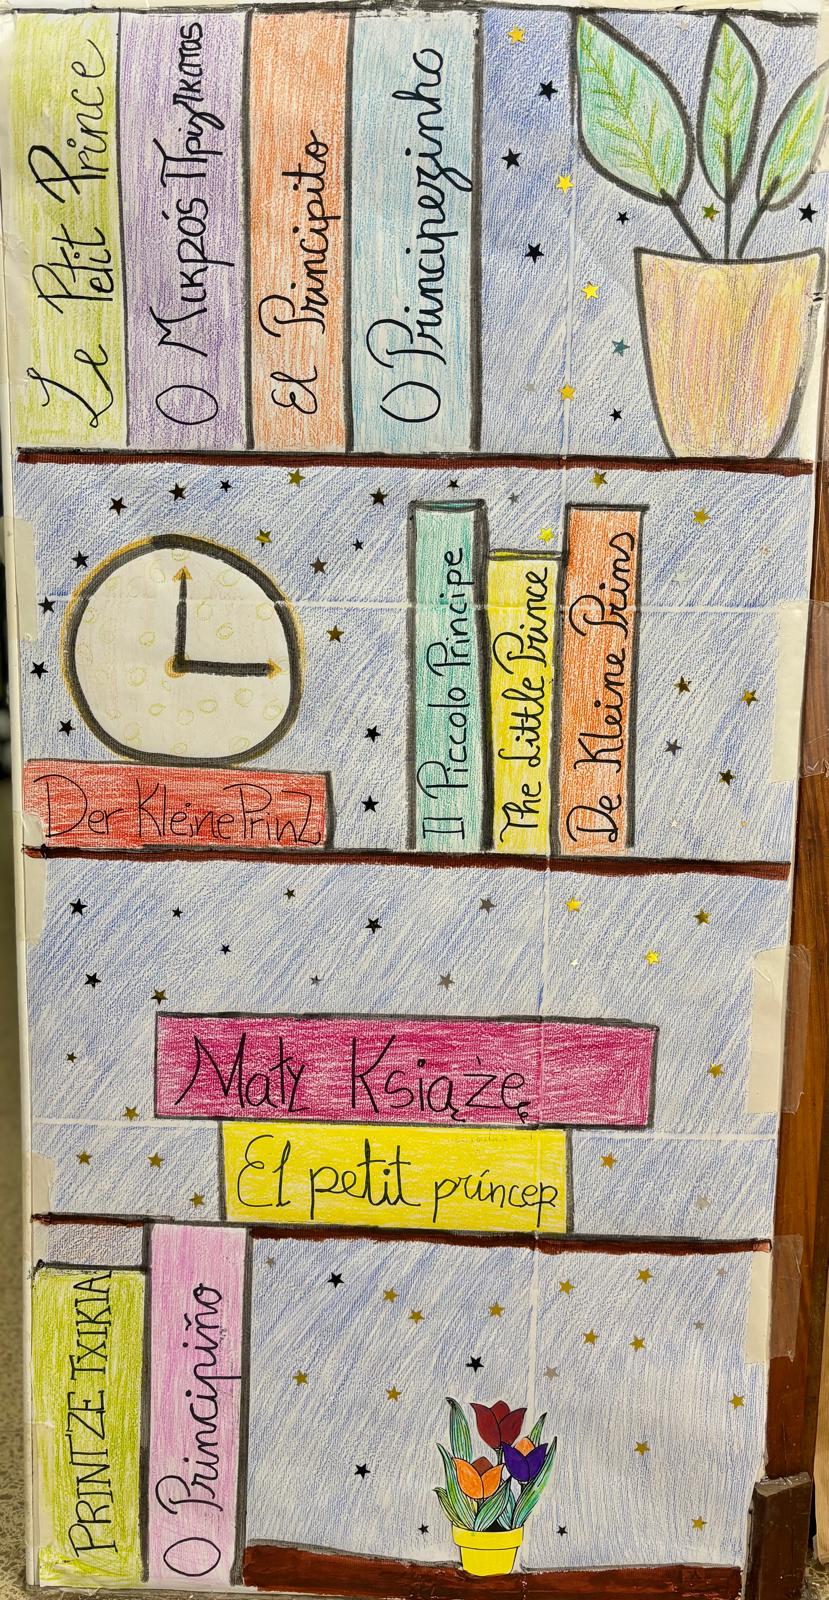 Le Petit Prince
Ο Μικρός Πρίγκιπας
El Principito
O Principezinho
Der Kleine Prinz
Il Piccolo Principe
The Little Prince
De Kleine Prins
Mały Książę
El petit príncep
PRINTZE TXIKIA
O Principiño